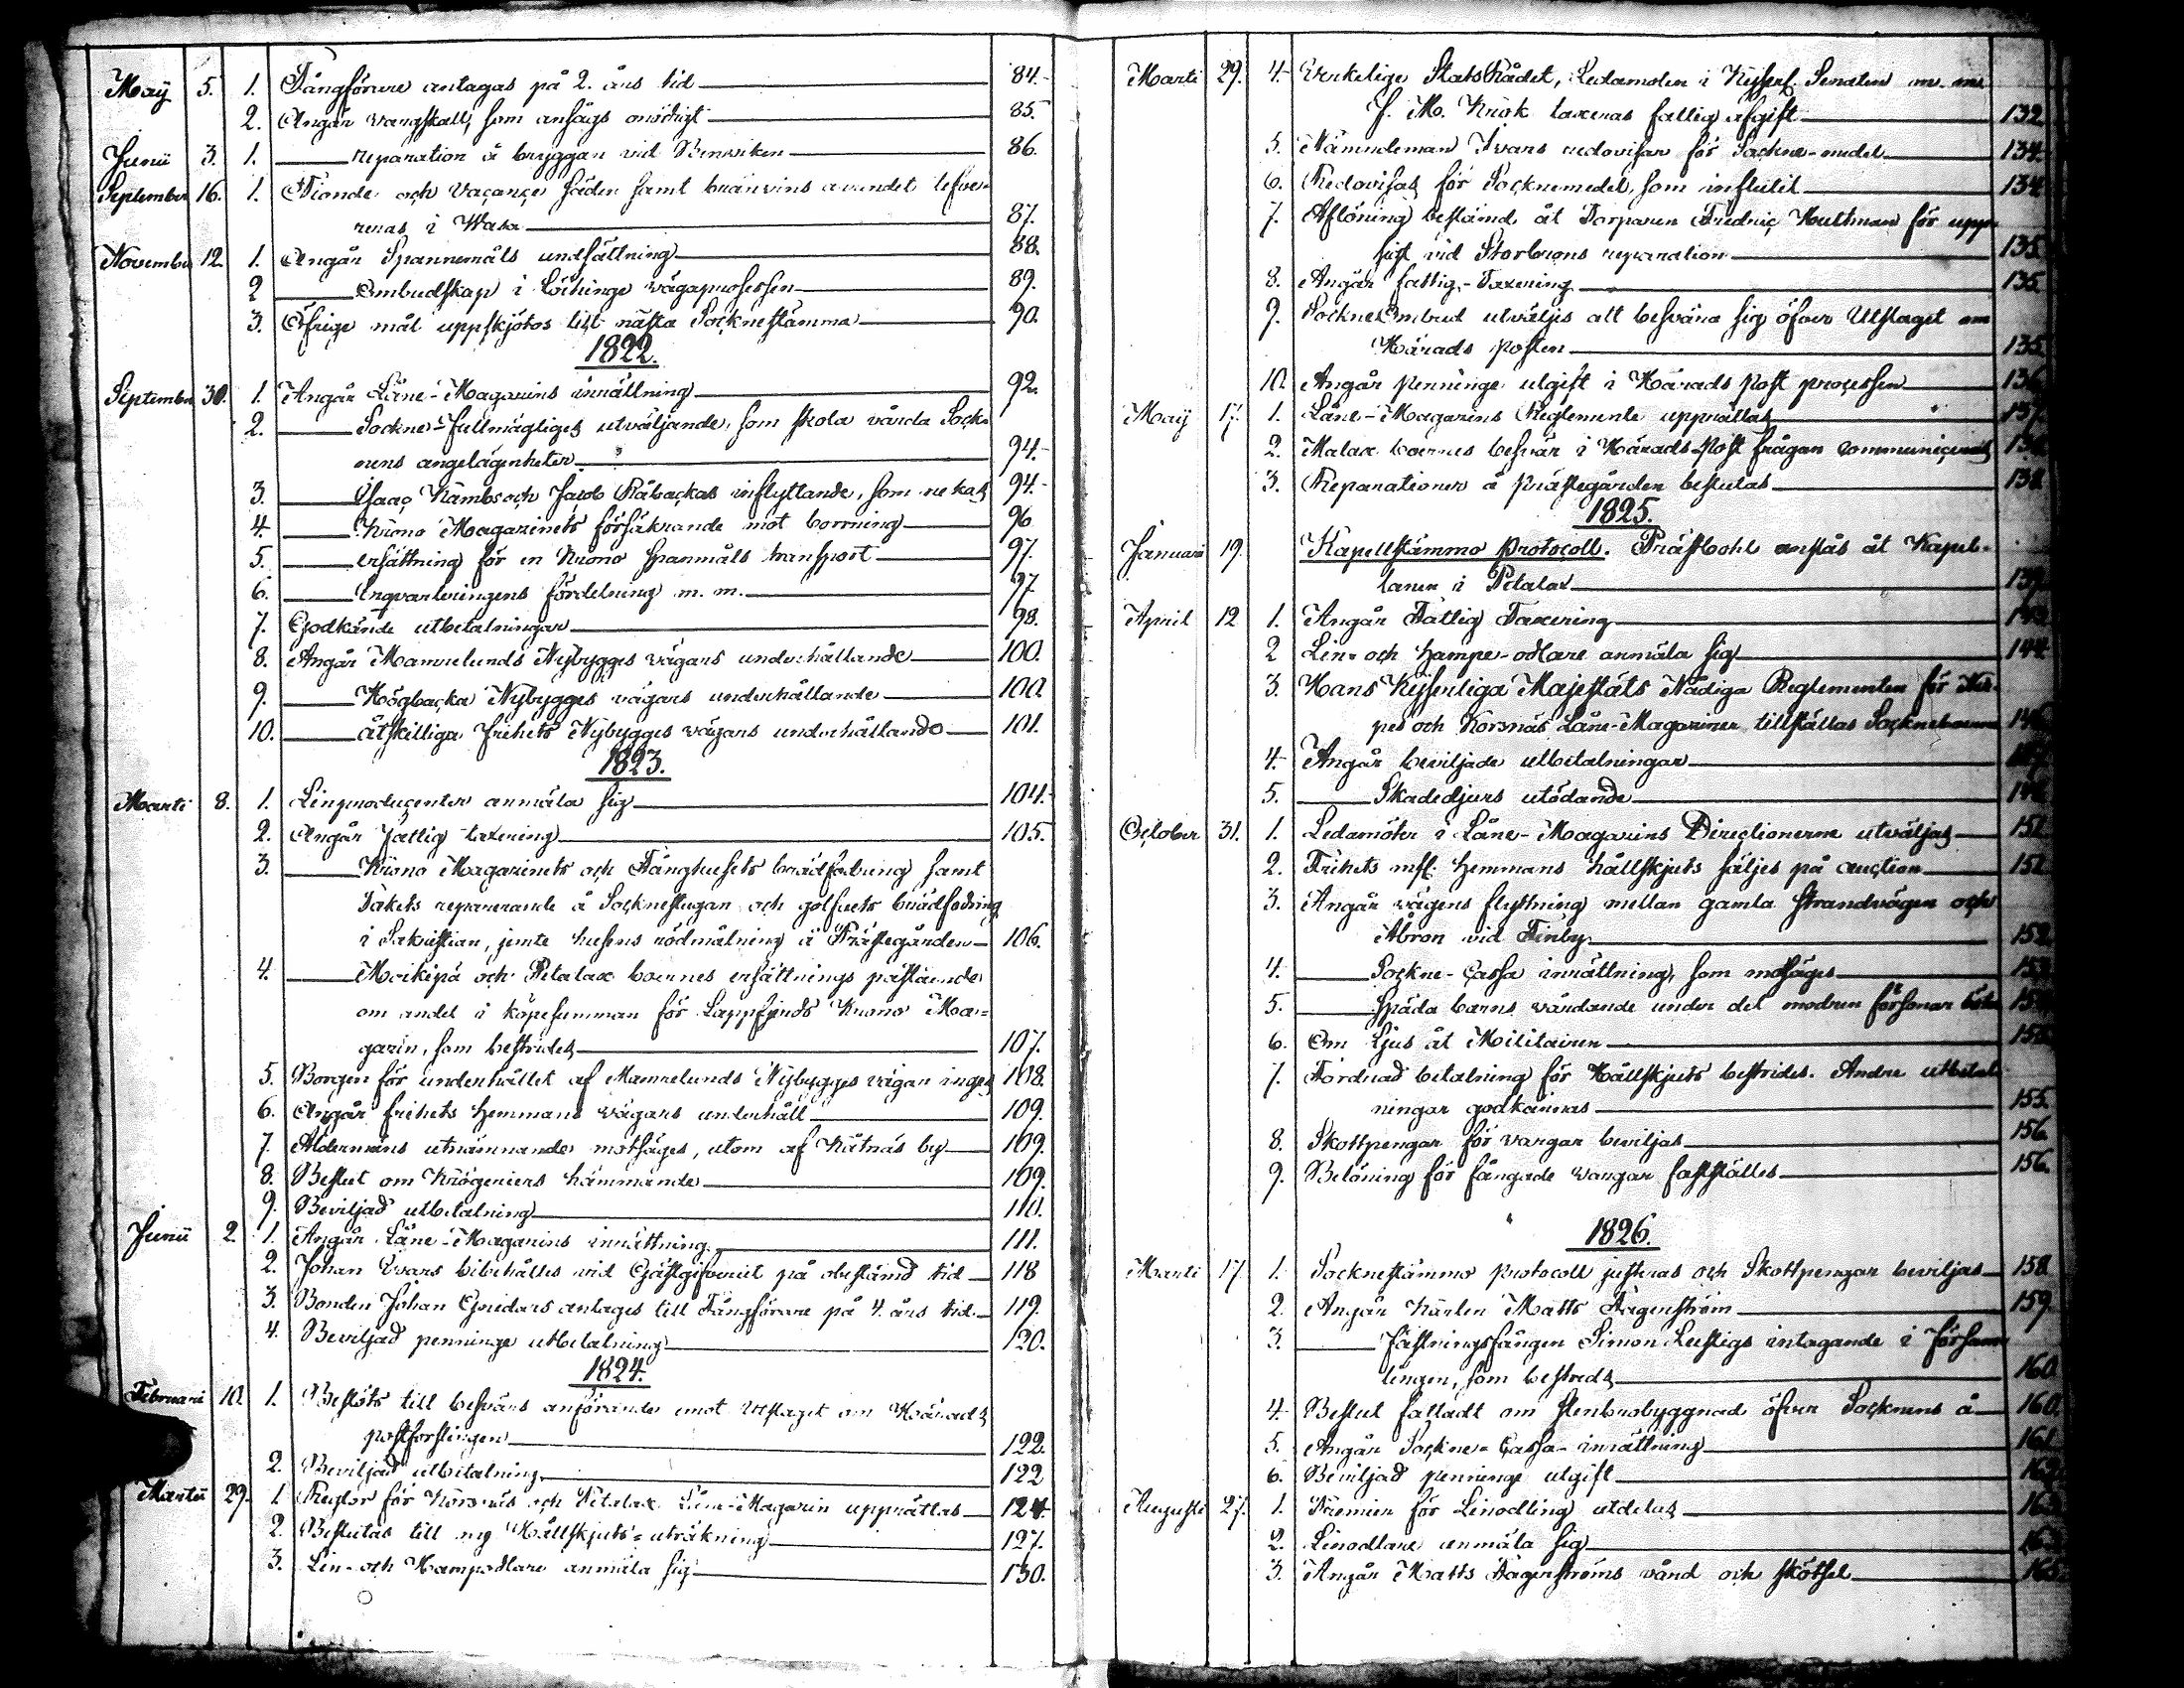 May 5. 1. Fångförare antagas på 2. års tid 84.
2. Angår vargskall, som ansågs onödigt 85.
Junii 3. 1. reparation å bryggan vid Benviken 86.
September 16. 1. Tionde och Vacance säden samt bränvins arendet lefve-
reras i Wasa 87.
November 12 1. Angår Spannemåls undsättning 88.
2 Ombudskap i vägaprosessen 89.
3. Öfrige mål uppskjötos till nästa Socknestämma 90.
1822.
September 30. 1. Angår Låne-Magasins inrättning 92.
2. Sockne-fullmägtiges utväljande, som skola vårda Sock-
nens angelägenheter 94.
3. Isaac Kämbs och Jacob Råbackas inflyttande, som nekas 94.
4. Krono Magazinets försäkrande mot borrning 96
5. ersättning för en Krono spanmåls transport 97.
6. Inqvarteringens fördelning m. m. 97.
7. Godkände utbetalningar 98.
8. Angår Mamrelunds Nybygges vägars underhållande 100.
9. Högbacka Nybygges vägars underhållande 100.
10. åtskilliga frihets Nybygges vägars underhållande 101.
1823.
Marti 8. 1. Linproducenter anmäla sig 104.
2. Angår fattig taxering 105.
3. Krono Magazinets och Fånghusets brädfodring samt
Takets reparerande å Sockenstugan och golfvets brädfodring
i Sakristian, jemte husens rödmålning å Prästegården 106.
4. Moikipä och Petalax boernes ersättnings påstående
om andel i köpesumman för Lappfjerds Krono Ma-
gazin, som bestrides 107.
5. Borgen för underhållet af Mamrelunds Nybygges vägar inges 108.
6. Angår frihets hemmans vägars underhåll 109.
7. Åldermäns utnämnande motsäges, utom af Kåtnäs by 109.
8. Beslut om Krögeriers hämmande 109.
9. Beviljad utbetalning 110.
Junii 2 1. Angår Låne-Magazins inrättning 111.
2. Johan Ivars bibehålles vid Gästgifveriet på obestämd tid 118
3. Bonden Johan Gnidars antages till Fångförare på 4. års tid 119.
4. Beviljad penninge utbetalning 120.
1824.
Februari 10. 1. Beslöts till besvärs anförande emot Utslaget om Härads
postforslingen 122.
2. Beviljad utbetalning 122
Martii 29. 1 Reglor för Korsnäs och Petalax Låne-Magazin upprättas 124.
2. Beslutas till ny Hållskjuts-uträkning 127.
3. Lin- och Hampodlare anmäla sig 130.
Marti 29. 4. Verkelige StatsRådet, Ledamoten i Kejserl. Senaten m. m.
J. M. Krook taxeras fattig afgift 132
5. Nämndeman Ivars redovisar för Sockne-medel 134.
6. Redovisas för Socknemedel, som influtit 134
7. Aflöning bestämd åt Torparen Fredric Huttman för upp-
sigt vid Storbrons reparation 135.
8. Angår fattig-Taxering 135.
9. SockneOmbud utväljes att besvära sig öfver Utslaget om
Härads posten 135.
10. Angår penninge utgift i Härads Post processen 136
May 17. 1. Låne-Magazins Reglemente upprättas 137
2. Malax boernes besvär i Härads-Post frågan communiceras
3. Reparationer å prästegården beslutas 138.
1825.
Januari 19. Kapellstämmo Protocoll. Prästbohl anslås åt Kapel-
lanen i Petalax 139
April 12 1. Angår Fattig Taxering
2 Lin- och Hampe-odlare anmäla sig 144
3. Hans Kejserliga Majestäts Nådiga Reglementen för När-
pes och Korsnäs Låne-Magaziner tillställas Sockneboerne 146
4. Angår beviljade utbetalningar
5. Skadedjurs utödande
October 31. 1. Ledamöter i Låne-Magazins Directionerne utväljas 151
2. Frihets hemmans hållskjuts säljes på auction 151
3. Angår vägens flyttning mellan gamla strandvägen och
Åbron vid Finby 152
4. Sockne-Cassa inrättning, som motsäges 153
5. späda barns vårdande under det modren försonar
6. Om Ljus åt Militairen
7. Fordrad betalning för Hållskjuts bestrides. Andre utbetal-
ningar godkännas 155.
8. Skottpengar för vargar beviljas 156
9. Belöning för fångade vargar fastställes 156.
1826.
Marti 17. 1. Socknestämmo protocoll justeras och Skottpengar beviljas 158.
2. Angår Karlen Matts Fagerström 159.
3. Fästningsfången Simon Lustigs intagande i försam-
lingen, som bestreds 160
4. Beslut fattadt om stenbrobyggnad öfver Socknens å 160.
5. Angår Sockne-Cassa-inrättning 161
6. Beviljad penninge utgift
Augusti 27. 1. Premier för Linodling utdelas
2. Linodlare anmäla sig
3. Angår Matts Fagerströms vård och skötsel